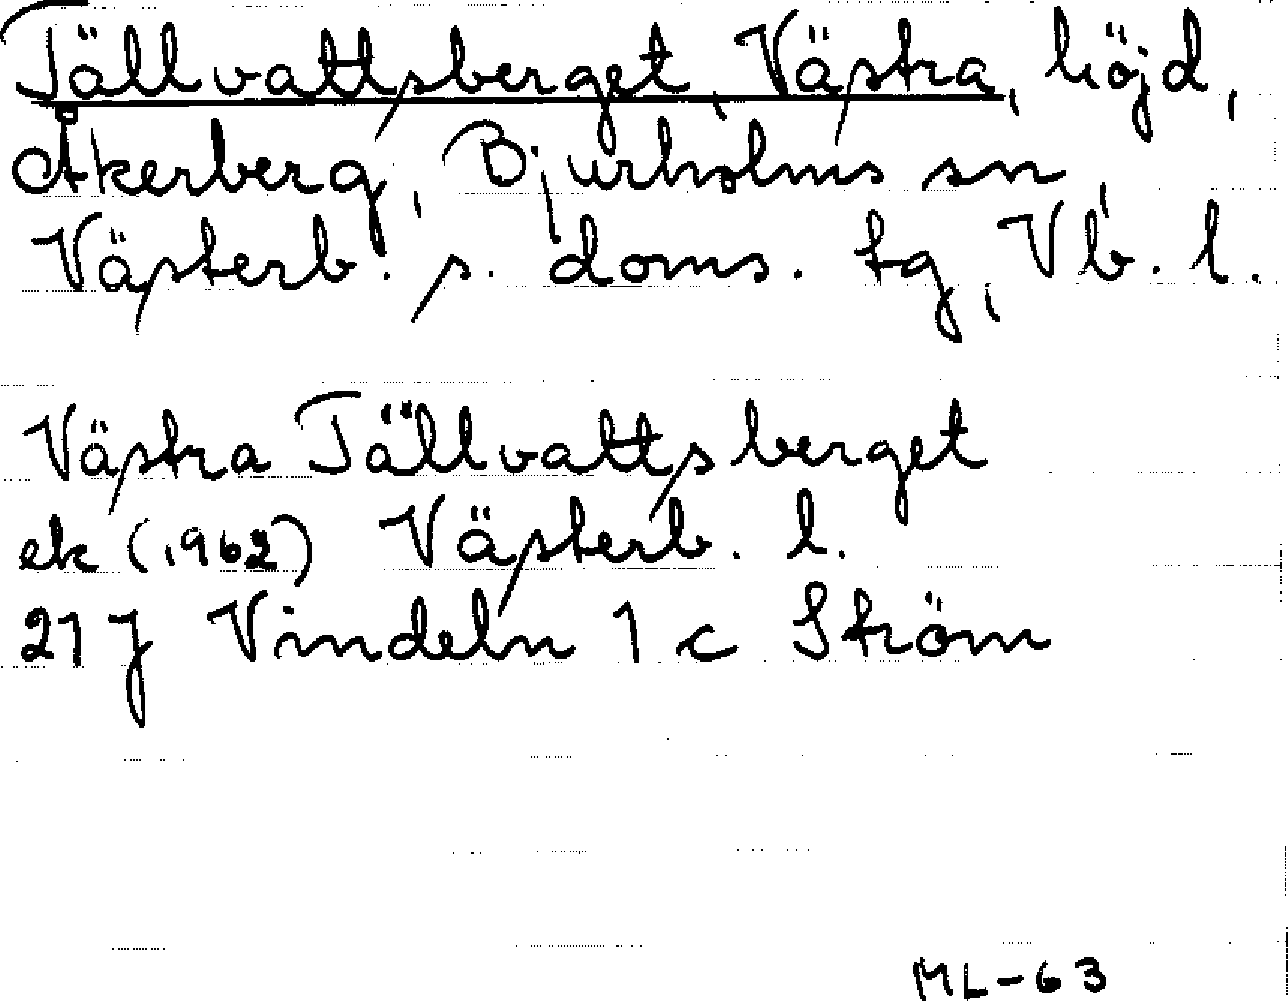 Tällvattsberget, Västra, höjd,
Åkerberg, Bjurholms sn,
Västerb. s. doms. tg, Vb. l.
Västra Tällvattsberget
ek (1962) Västerb. l.
21 J Vindeln 1 c Ström
ML-63